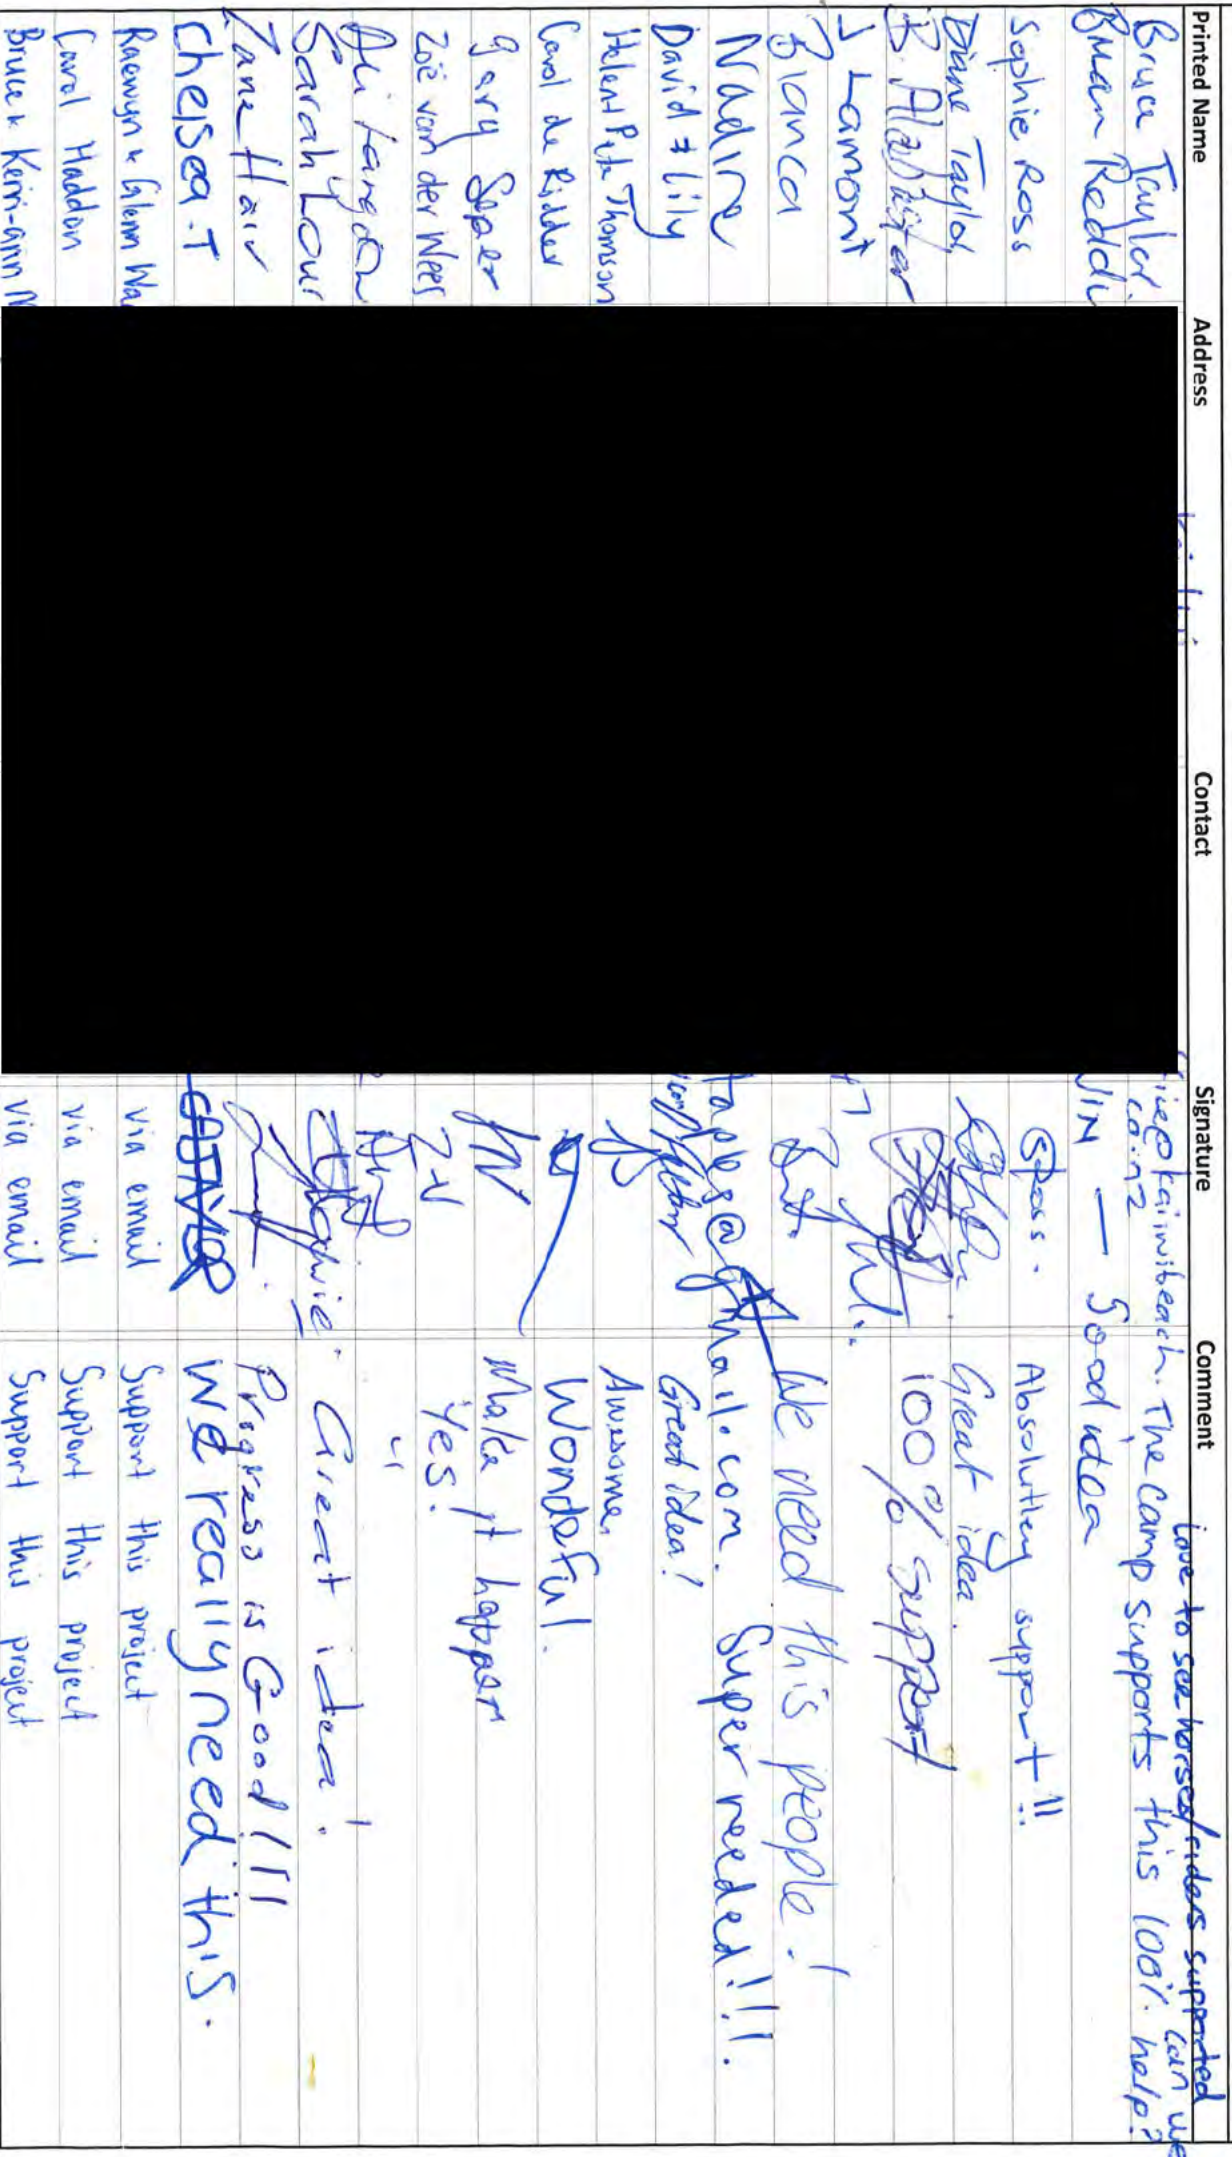 Printed Name Address Contact Signature Comment
Love to see horses/riders supported
Bruce Taylor The camp supports this 100%. can we help?
co.nz
Brian Good idea
Sophie Ross SRoss. Absolutley support!!
Diane Taylor Great idea.
B. Alabaster 100% support
J Lamont
Bianca We need this people!
Nadine taples@gmail.com. Super needed!!!.
David & Lily Great idea!
Helen & Pete Thomson Awesome
Carol de Ridder Wonderful.
Gary Make it happen
Zoë van der Wees ZV Yes!
Ali Langdon "
Sarah Great idea!
Zane Hair Progress is Good!!!
Chelsea.T We really need this.
Raewyn & Glenn via email Support this project
Carol Haddon via email Support this project
Bruce & Keri-ann via email Support this project